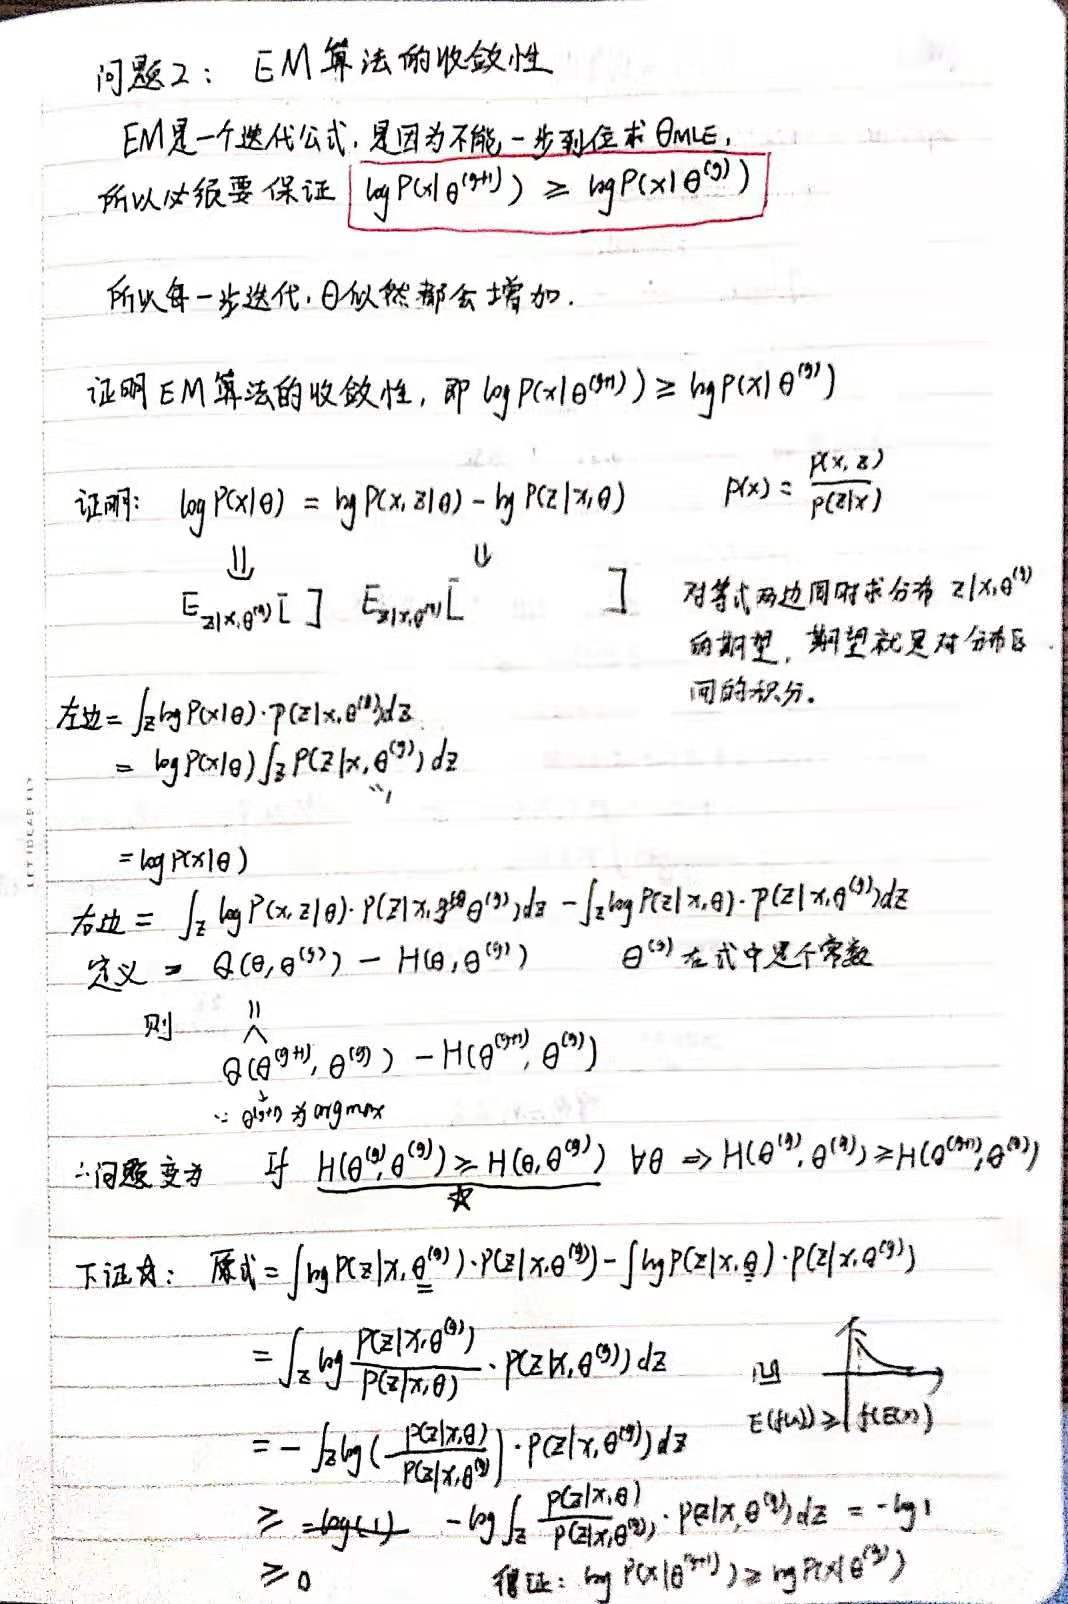 问题2： EM算法的收敛性
EM是一个迭代公式，是因为不能一步到位求 θMLE，
所以必须要保证 log P(x|θ^(g+1)) ≥ log P(x|θ^(g))
所以每一步迭代，θ似然都会增加.
证明EM算法的收敛性，即 log P(x|θ^(g+1)) ≥ log P(x|θ^(g))
证明: log P(x|θ) = log P(x,z|θ) - log P(z|x,θ) p(x) = p(x,z) / p(z|x)
⇓ ⇓
E_z|x,θ^(g) [ ] E_z|x,θ^(g) [ ] 对等式两边同时求分布 z|x,θ^(g)
的期望，期望就是对分布区
间的积分。
左边 = ∫_z log P(x|θ)·p(z|x,θ^(g))dz
= log P(x|θ) ∫_z P(z|x,θ^(g)) dz
"1
= log P(x|θ)
右边 = ∫_z log P(x,z|θ)·P(z|x,θ^(g))dz - ∫_z log P(z|x,θ)·p(z|x,θ^(g))dz
定义 = Q(θ,θ^(g)) - H(θ,θ^(g)) θ^(g) 在式中是个常数
则
Q(θ^(g+1),θ^(g)) - H(θ^(g+1),θ^(g))
∵ θ^(g+1) 为 argmax
∴问题变为 If H(θ^(g),θ^(g)) ≥ H(θ,θ^(g)) ∀θ ⇒ H(θ^(g),θ^(g)) ≥ H(θ^(g+1),θ^(g))
☆
下证☆: 原式 = ∫log P(z|x,θ^(g))·P(z|x,θ^(g)) - ∫log P(z|x,θ)·P(z|x,θ^(g))
= ∫_z log P(z|x,θ^(g)) / P(z|x,θ) · P(z|x,θ^(g)) dz 凹
E(f(x)) ≥ f(E(x))
= - ∫_z log( P(z|x,θ) / P(z|x,θ^(g)) )·P(z|x,θ^(g)) dz
≥ = log(1) - log ∫_z P(z|x,θ) / P(z|x,θ^(g)) · P(z|x,θ^(g)) dz = -log 1
≥ 0 得证: log P(x|θ^(g+1)) ≥ log P(x|θ^(g))